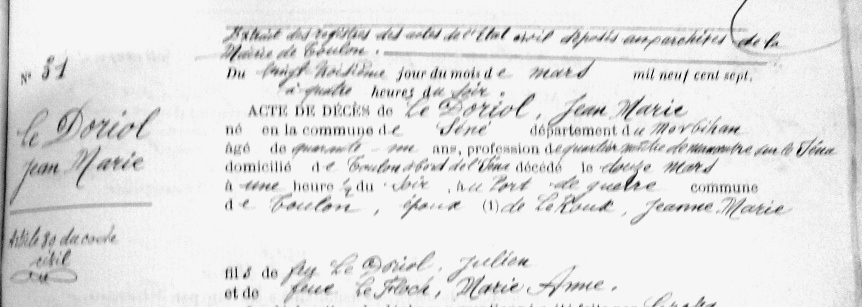 Extrait des registres des actes de l'Etat civil déposés aux archives de la
Mairie de Toulon.
N° 31
Du vingt troisième jour du mois de mars mil neuf cent sept.
à quatre heures du soir
ACTE DE DÉCÈS de Le Doriol, Jean Marie
le Doriol
jean Marie
né en la commune de Séné département du Morbihan
âgé de quarante-un ans, profession de quartier maître de manœuvre sur le Iéna
domicilié de Toulon à bord de l'Iéna décédé le douze Mars
à une heure ½ du soir, au Port de guerre commune
de Toulon, époux (1) de Le Roux, Jeanne Marie
Article 80 du code
civil
fils de feu Le Doriol, Julien
et de feue Le Floch, Marie Anne.